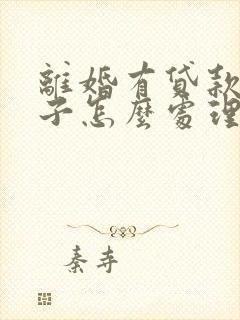 離婚有貸款
子怎麼處理
秦寺